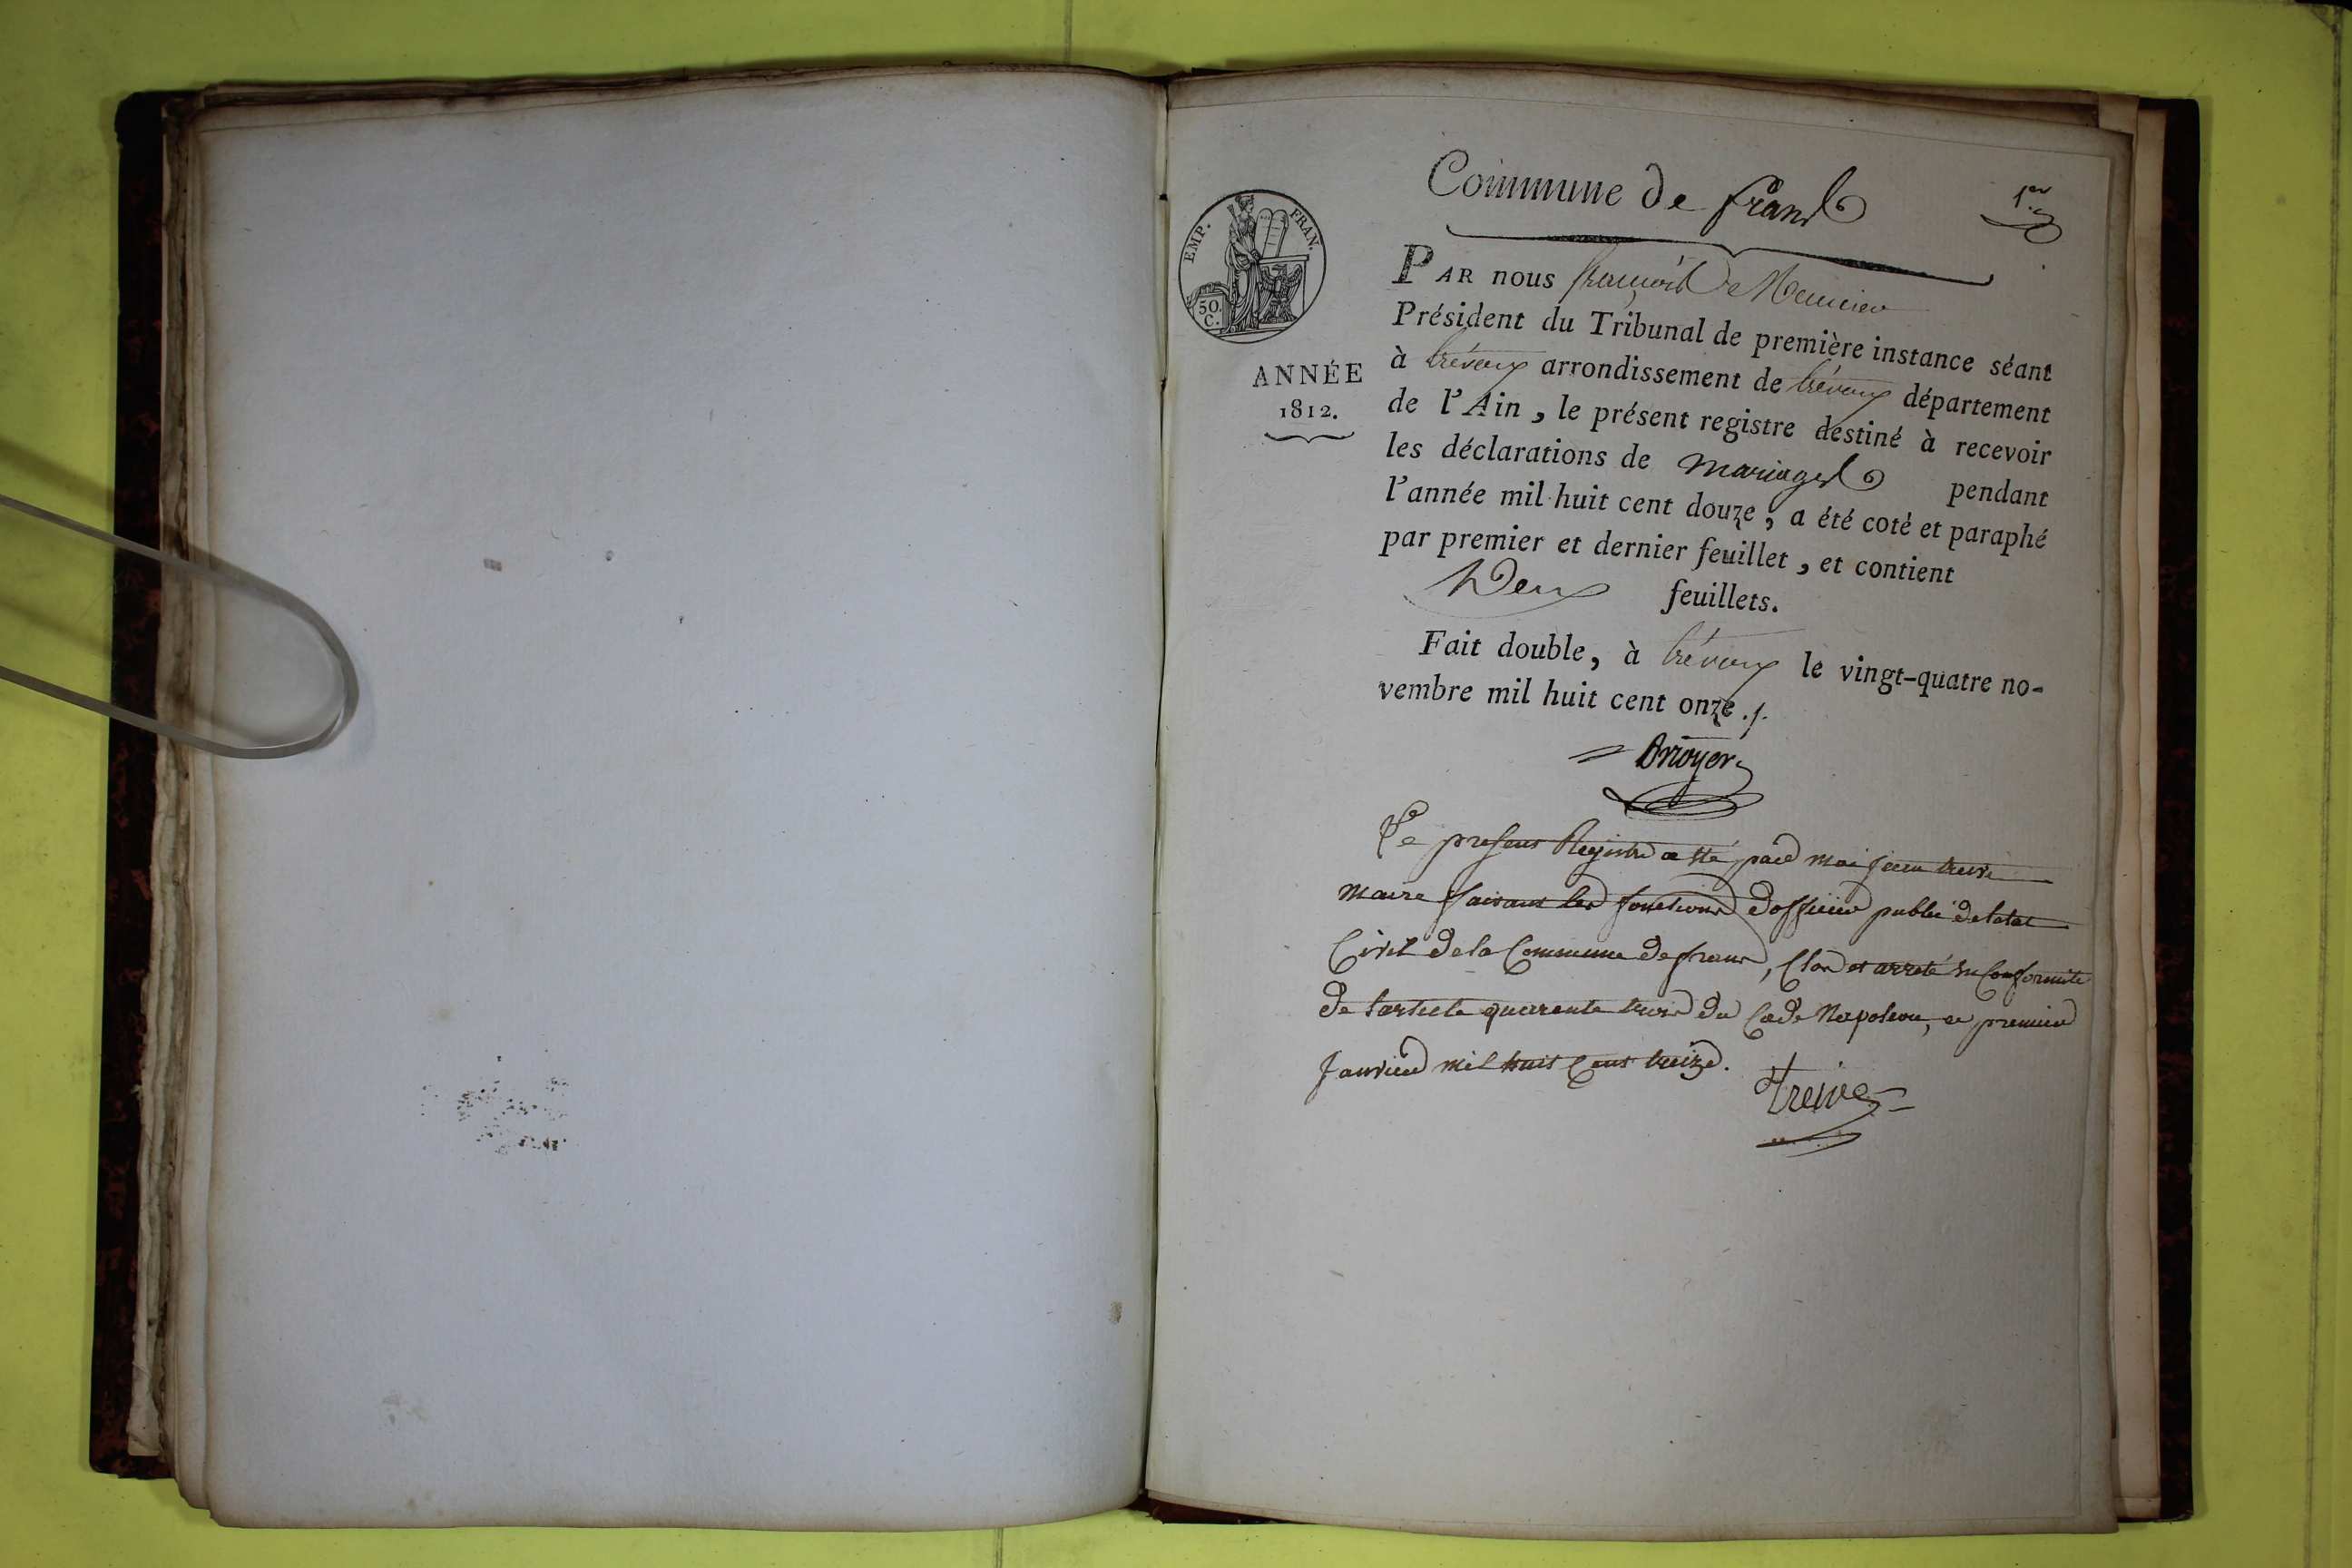 Commune de frans
1er
EMP. FRAN.
50.
C.
ANNÉE
1812.
PAR nous
Président du Tribunal de première instance séant
à trévoux arrondissement de trévoux département
de l'Ain, le présent registre destiné à recevoir
les déclarations de mariages pendant
l'année mil huit cent douze, a été coté et paraphé
par premier et dernier feuillet, et contient
Deux feuillets.
Fait double, à trévoux le vingt-quatre no-
vembre mil huit cent onze.
Le present Registre a été par moi jean treive
maire faisant les fonctions dofficier public de letat
Civil de la Commune de frans, Clos et arreté en Conformité
de larticle quarante trois du Code Napoleon, ce premier
janvier mil huit Cent treize.
Treive